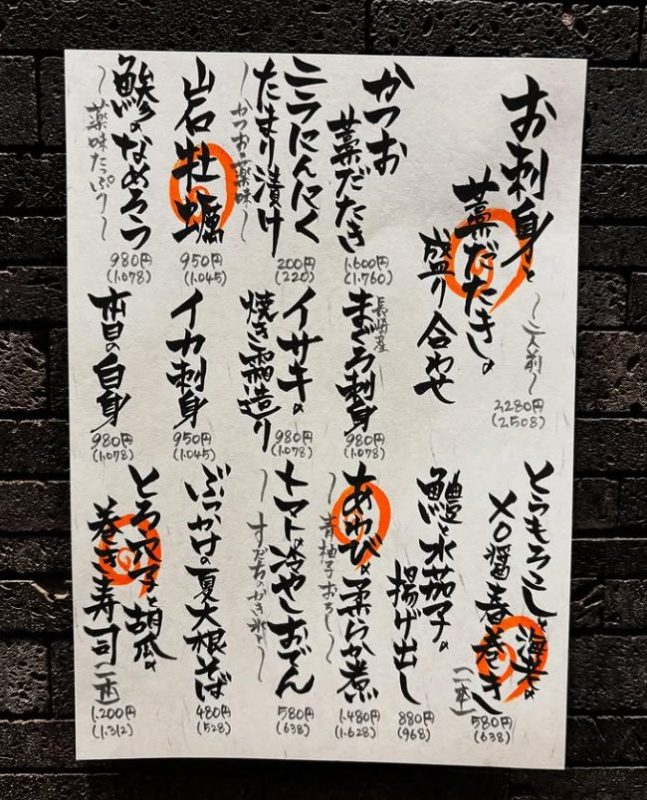 お刺身と
藁だたきの
盛り合わせ
〜二人前〜
2,280円
(2,508)
かつお
藁だたき
1,600円
(1,760)
長崎産
まぐろ刺身
980円
(1,078)
ニラにんにく
たまり漬け
〜かつお薬味〜
200円
(220)
イサキの
焼き霜造り
980円
(1,078)
岩牡蠣
950円
(1,045)
イカ刺身
950円
(1,045)
鯵のなめろう
〜薬味たっぷり〜
980円
(1,078)
本日の白身
980円
(1,078)
とうもろこしと海老の
XO醤春巻き
(一本)
580円
(638)
鱧と水茄子の
揚げ出し
880円
(968)
あわびの柔らか煮
〜青柚子おろし〜
1,480円
(1,628)
トマトの冷やしおでん
〜すだちのかき氷〜
580円
(638)
ぶっかけの夏大根そば
480円
(528)
とろ穴子と胡瓜の
巻き寿司
1,200円
(1,312)